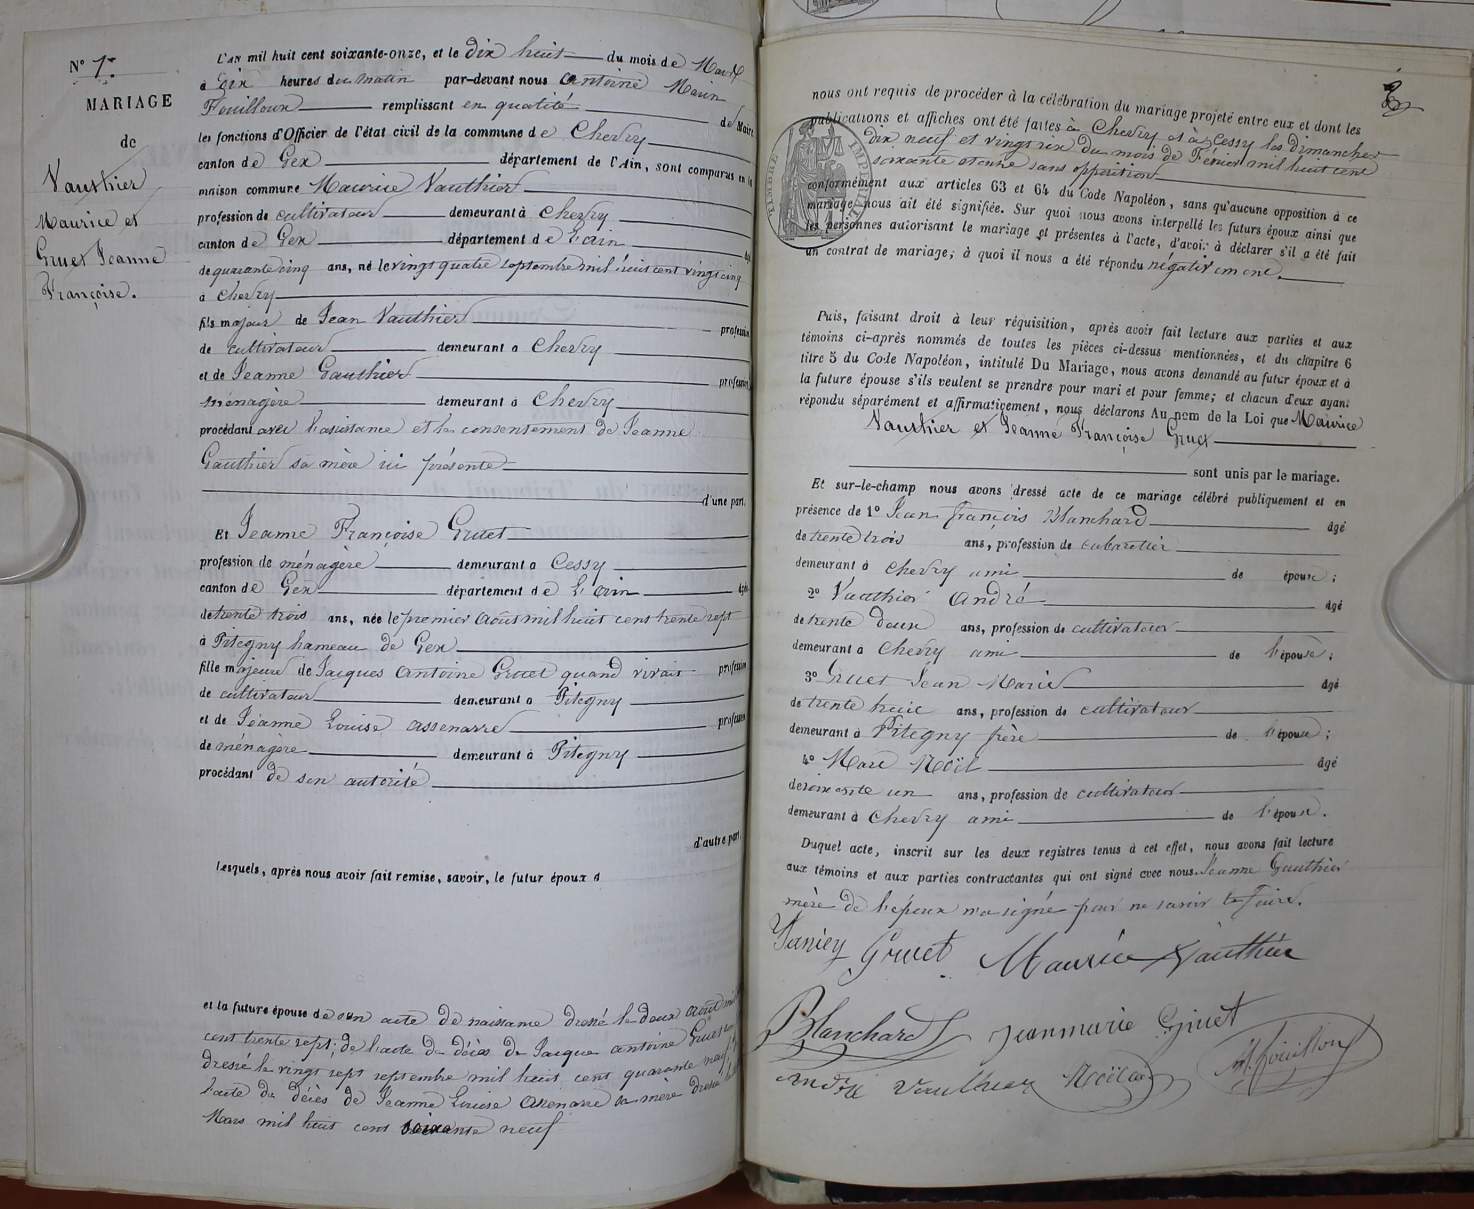 N° 1er
MARIAGE
de
Vauthier
Maurice et
Gruet Jeanne
Françoise.
L'AN mil huit cent soixante-onze, et le dix huit du mois de Mars
à dix heures du matin par-devant nous Antoine Marin
Fouilloux remplissant en qualité de Maire
les fonctions d'Officier de l'état civil de la commune de Chevry
canton de Gex département de l'Ain, sont comparus en la
maison commune Maurice Vauthier
profession de cultivateur demeurant à Chevry
canton de Gex département de l'ain âgé
de quarante cinq ans, né le vingt quatre septembre mil huit cent vingt cinq
à Chevry
fils majeur de Jean Vauthier profession
de cultivateur demeurant à Chevry
et de Jeanne Gauthier profession
ménagère demeurant à Chevry
procédant avec l'assistance et le consentement de Jeanne
Gauthier sa mère ici présente
d'une part.
Et Jeanne Françoise Gruet
profession de ménagère demeurant à Cessy
canton de Gex département de l'ain âgée
de trente trois ans, née le premier août mil huit cent trente sept
à Pitegny hameau de Gex
fille majeure de Jacques Antoine Gruet quand vivait profession
de cultivateur demeurant à Pitegny
et de Jeanne Louise Assenarre profession
de ménagère demeurant à Pitegny
procédant de son autorité
d'autre part.
Lesquels, après nous avoir fait remise, savoir, le futur époux d
et la future épouse de son acte de naissance dressé le deux août mil
cent trente sept; de l'acte de décès de Jacques antoine Gruet
dressé le vingt sept septembre mil huit cent quarante neuf
l'acte de décès de Jeanne Louise Assenarre sa mère dressé
Mars mil huit cent soixante neuf
nous ont requis de procéder à la célébration du mariage projeté entre eux et dont les
publications et affiches ont été faites à Chevry et à Cessy les dimanches
dix neuf et vingt six du mois de Février mil huit cent
soixante et onze sans opposition
conformément aux articles 63 et 64 du Code Napoléon, sans qu'aucune opposition à ce
mariage nous ait été signifiée. Sur quoi nous avons interpellé les futurs époux ainsi que
les personnes autorisant le mariage et présentes à l'acte, d'avoir à déclarer s'il a été fait
un contrat de mariage; à quoi il nous a été répondu négativement.
TIMBRE IMPERIAL
Puis, faisant droit à leur réquisition, après avoir fait lecture aux parties et aux
témoins ci-après nommés de toutes les pièces ci-dessus mentionnées, et du chapitre 6
titre 5 du Code Napoléon, intitulé Du Mariage, nous avons demandé au futur époux et à
la future épouse s'ils veulent se prendre pour mari et pour femme; et chacun d'eux ayant
répondu séparément et affirmativement, nous déclarons Au nom de la Loi que Maurice
Vauthier et Jeanne Françoise Gruet
sont unis par le mariage.
Et sur-le-champ nous avons dressé acte de ce mariage célébré publiquement et en
présence de 1° Jean françois Blanchard âgé
de trente trois ans, profession de cabaretier
demeurant à Chevry ami de époux;
2° Vauthier André âgé
de trente deux ans, profession de cultivateur
demeurant à Chevry ami de l'épouse;
3° Gruet Jean Marie âgé
de trente huit ans, profession de cultivateur
demeurant à Pitegny frère de l'épouse;
4° Marc Noël âgé
de soixante un ans, profession de cultivateur
demeurant à Chevry ami de l'époux.
Duquel acte, inscrit sur les deux registres tenus à cet effet, nous avons fait lecture
aux témoins et aux parties contractantes qui ont signé avec nous. Jeanne Gauthier
mère de l'époux n'a signé pour ne savoir le faire.
Gruet Maurice Vauthier
Blanchard jeanmarie Gruet
andré Vauthier Noël M. Fouilloux